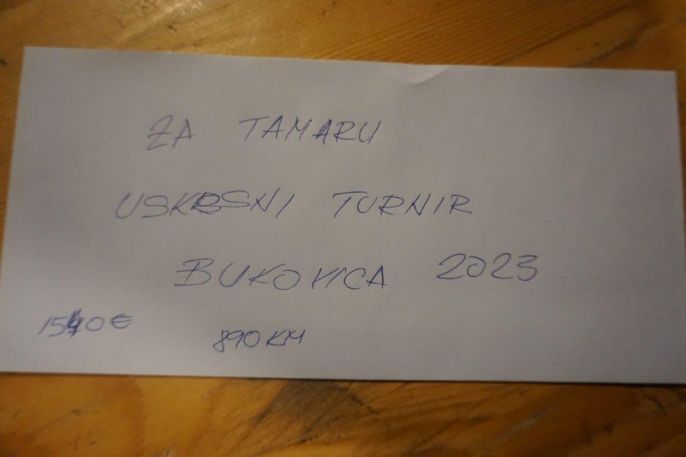 ZA TAMARU
USKRSNI TURNIR
BUKOVICA 2023
890 KM